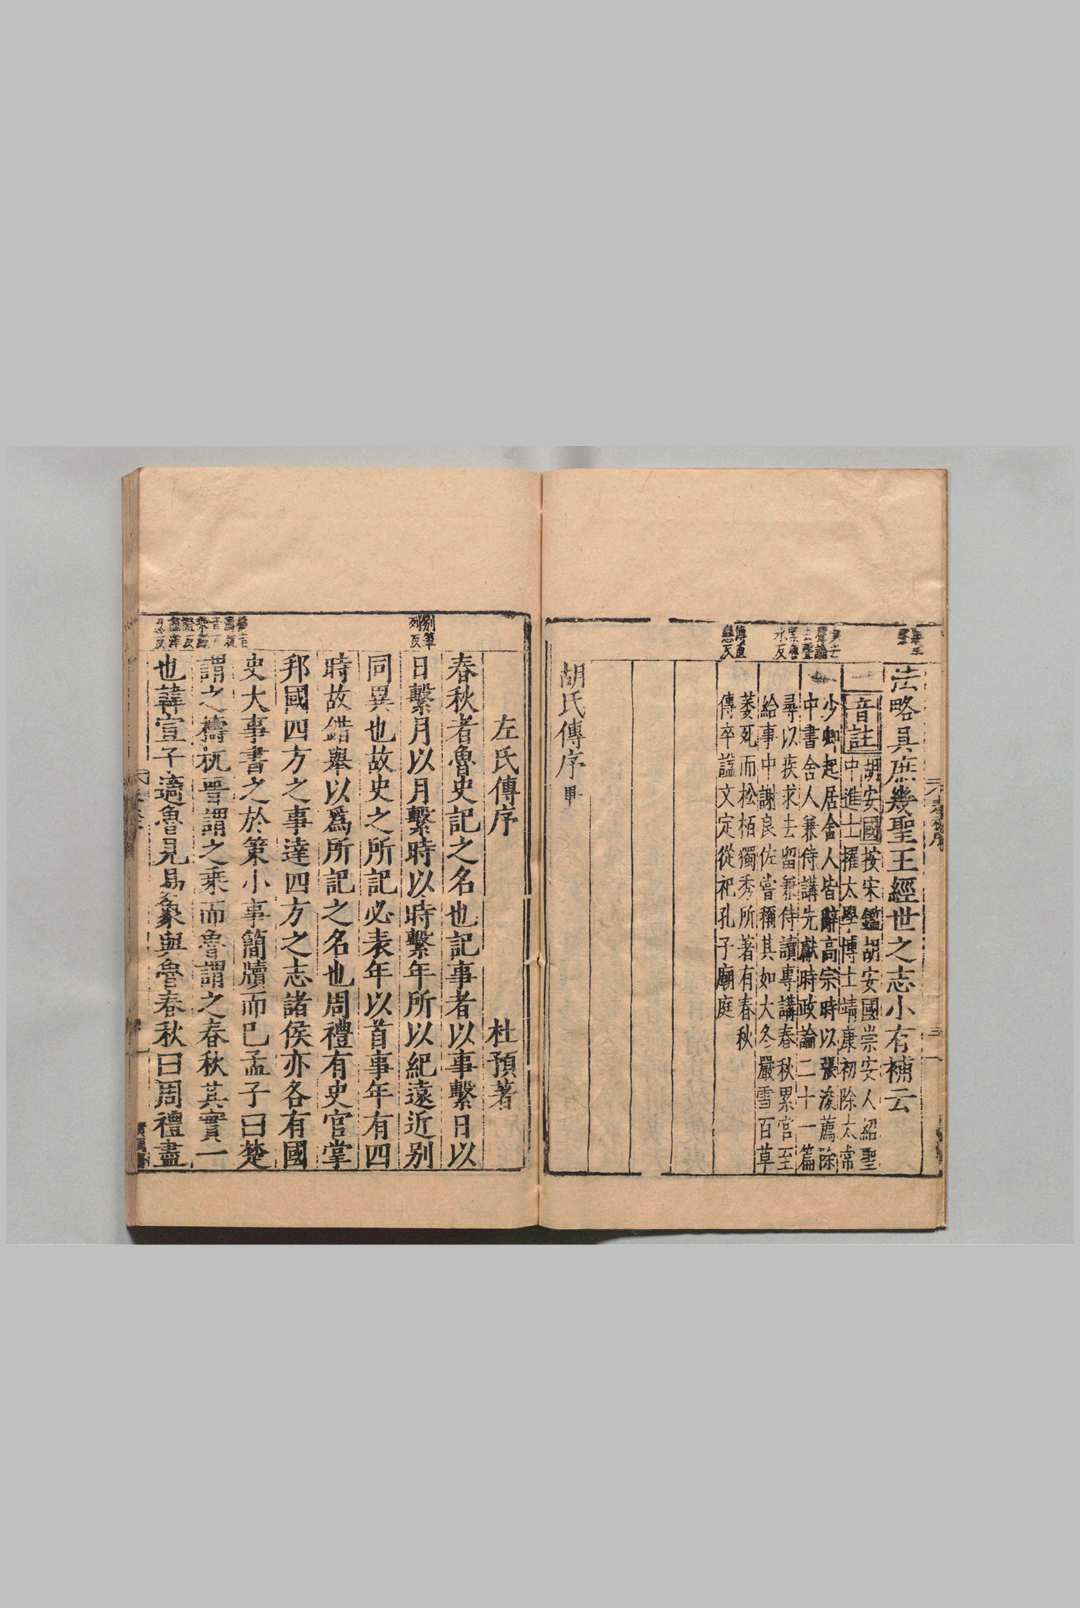 法略具庶幾聖王經世之志小有補云
音註
胡安國按宋鑑胡安國崇安人紹聖
中進士擢太學博士靖康初除太常
少卿起居舍人皆辭高宗時以張浚薦除
中書舍人兼侍講先獻時政論二十一篇
尋以疾求去留兼侍讀專講春秋累官至
給事中謝良佐嘗稱其如大冬嚴雪百草
萎死而松栢獨秀所著有春秋
傳卒謚文定從祀孔子廟庭
胡氏傳序畢
左氏傳序
杜預著
別筆
列反
春秋者魯史記之名也記事者以事繫日以
日繫月以月繫時以時繫年所以紀遠近別
同異也故史之所記必表年以首事年有四
時故錯舉以爲所記之名也周禮有史官掌
邦國四方之事達四方之志諸侯亦各有國
史大事書之於策小事簡牘而已孟子曰楚
謂之檮杌晉謂之乘而魯謂之春秋其實一
也韓宣子適魯見易象與魯春秋曰周禮盡